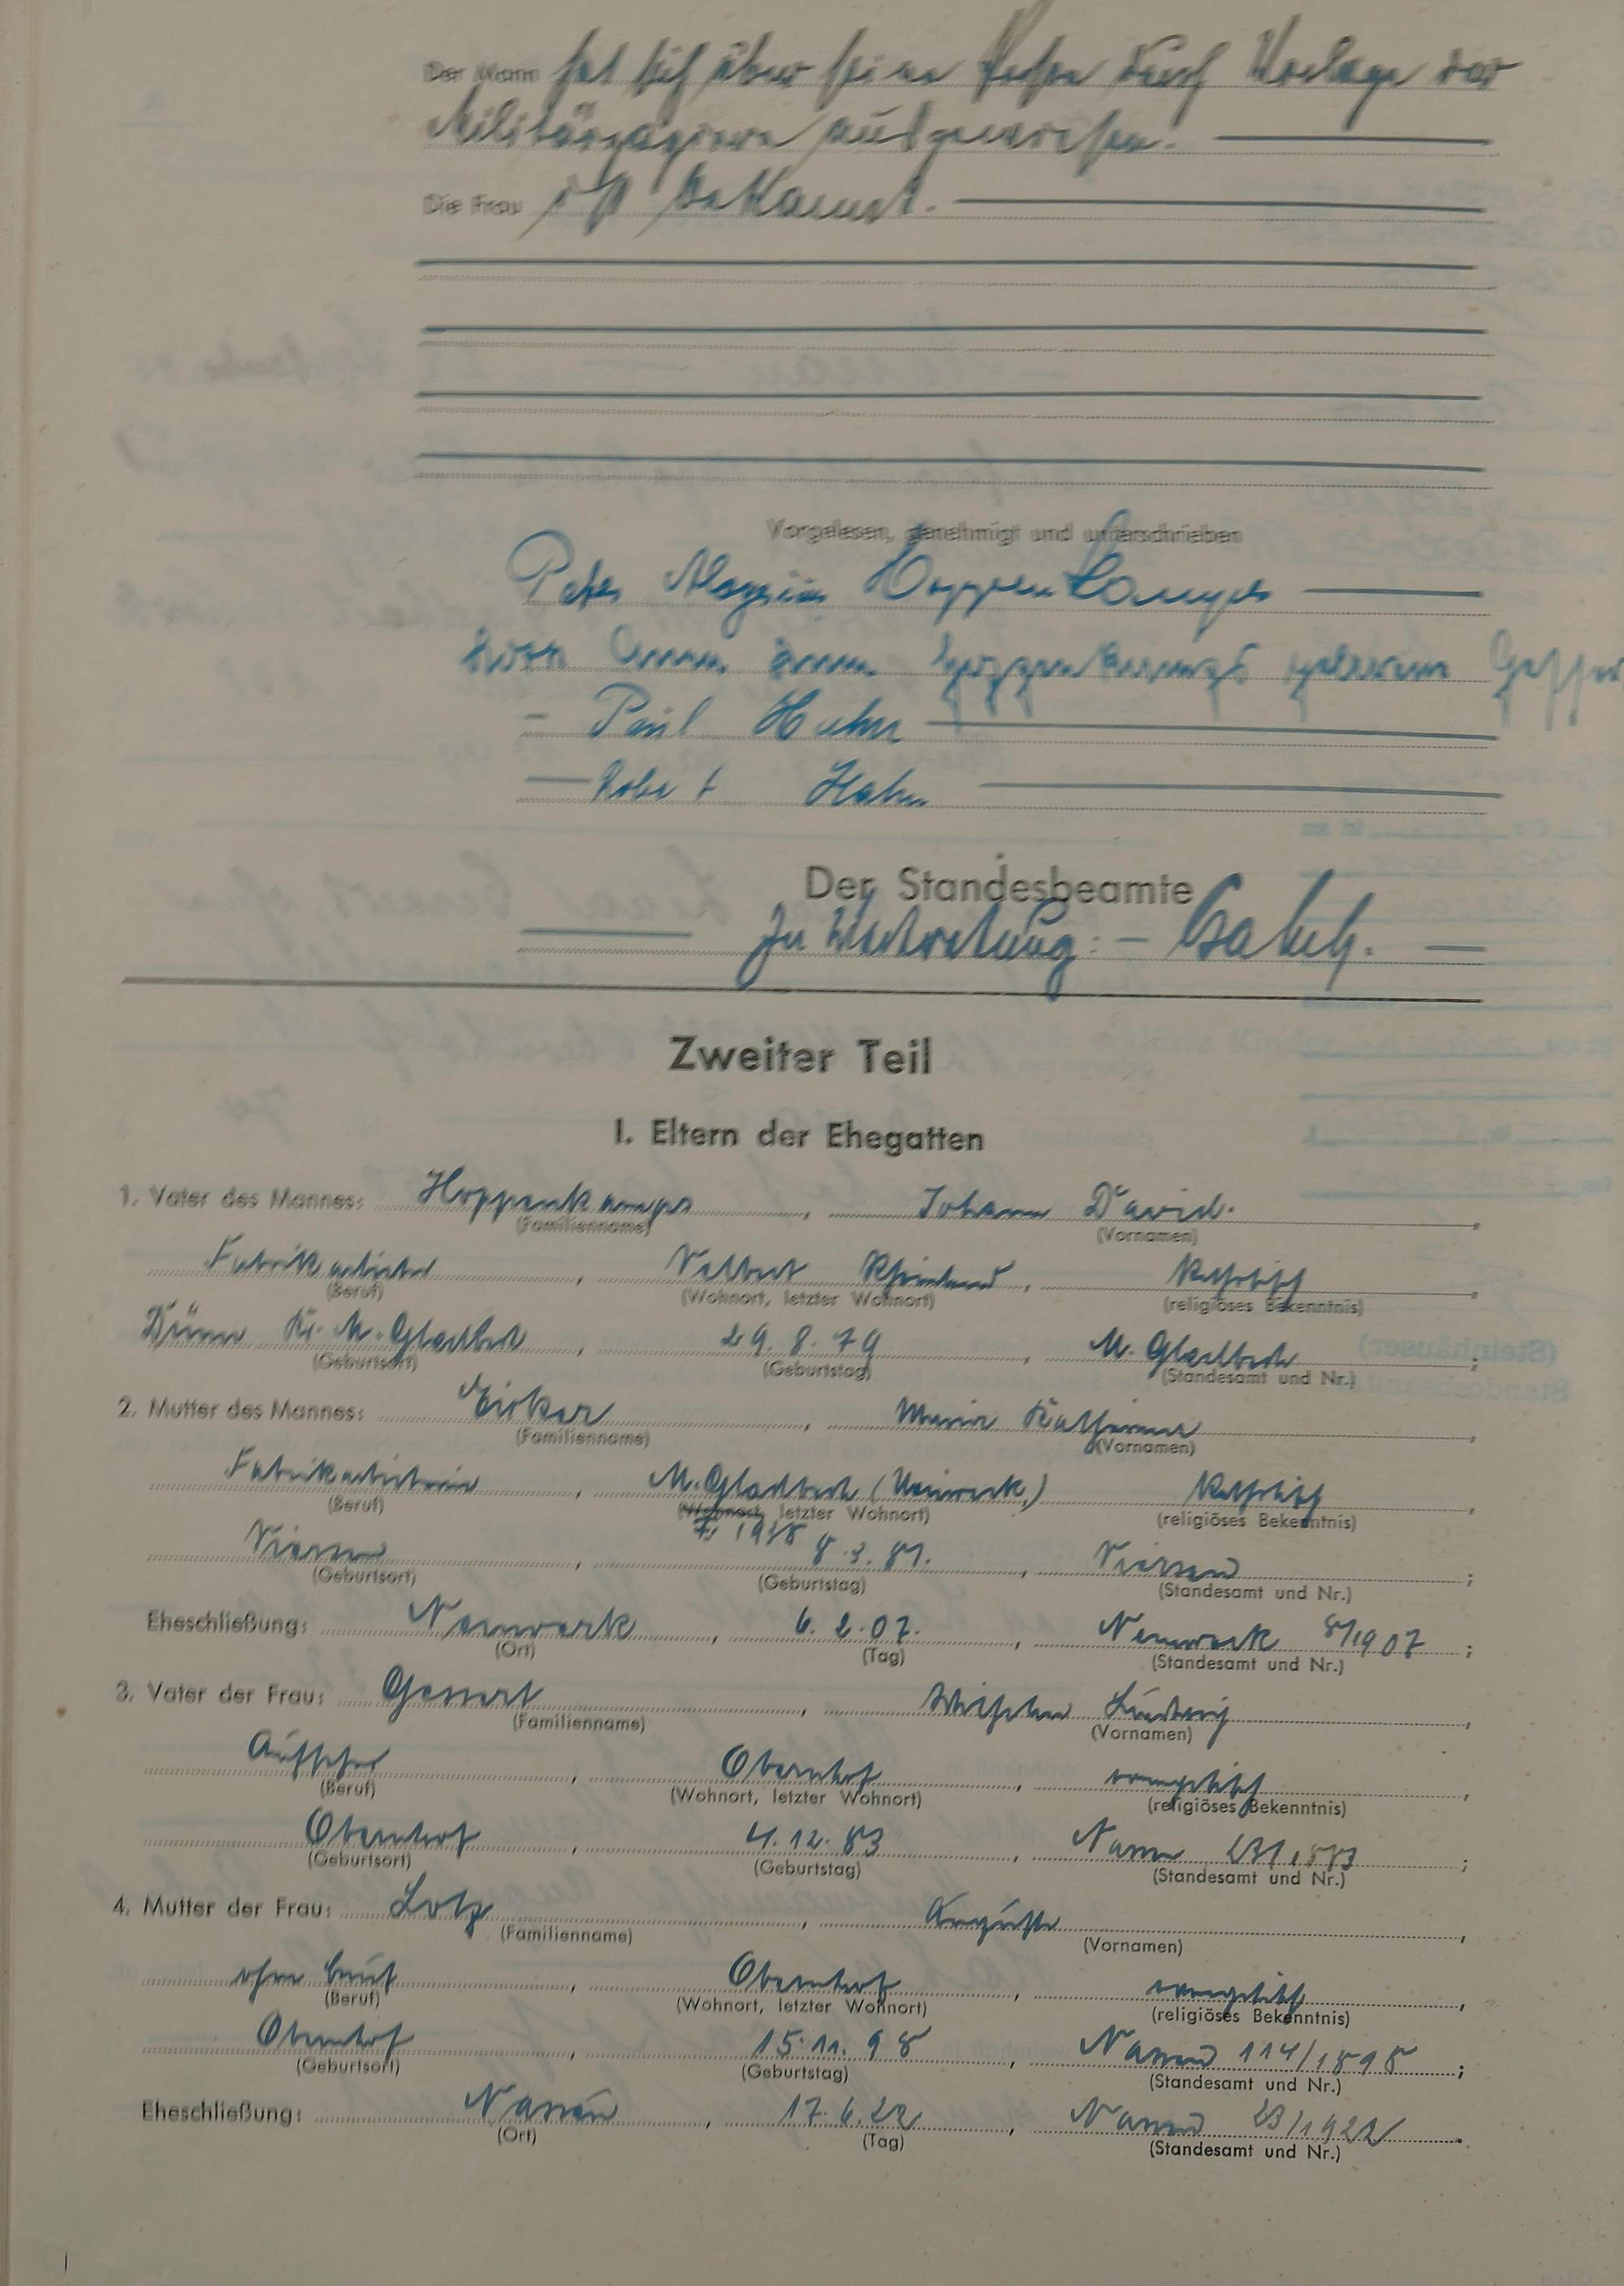 Der Mann hat sich über seine Person durch Vorlage der
Militärpapiere ausgewiesen.
Die Frau ist bekannt.
Vorgelesen, genehmigt und unterschrieben
Peter Aloysius Hoppenkamps
Hoppenkamps geborene
Paul Hahn
Robert Hahn
Der Standesbeamte
In Vertretung:
Zweiter Teil
I. Eltern der Ehegatten
1. Vater des Mannes: Hoppenkamps, Johann David.
(Familienname) (Vornamen)
Fabrikarbeiter, Velbert Rheinland, katholisch,
(Beruf) (Wohnort, letzter Wohnort) (religiöses Bekenntnis)
Kr. M. Gladbach, 29. 8. 79, M. Gladbach;
(Geburtsort) (Geburtstag) (Standesamt und Nr.)
2. Mutter des Mannes: Maria Katharina,
(Familienname) (Vornamen)
Fabrikarbeiterin, M. Gladbach (Neuwerk), katholisch,
(Beruf) (Wohnort, letzter Wohnort) (religiöses Bekenntnis)
Viersen, 8. 3. 81., Viersen;
(Geburtsort) (Geburtstag) (Standesamt und Nr.)
Eheschließung: Neuwerk, 6. 2. 07., Neuwerk 8/1907;
(Ort) (Tag) (Standesamt und Nr.)
3. Vater der Frau: Wilhelm Ludwig,
(Familienname) (Vornamen)
Aufseher, Obernhof, evangelisch,
(Beruf) (Wohnort, letzter Wohnort) (religiöses Bekenntnis)
Obernhof, 4. 12. 83, Nassau;
(Geburtsort) (Geburtstag) (Standesamt und Nr.)
4. Mutter der Frau: Lotz, Auguste,
(Familienname) (Vornamen)
ohne Beruf, Obernhof, evangelisch,
(Beruf) (Wohnort, letzter Wohnort) (religiöses Bekenntnis)
Obernhof, 15. 11. 98, Nassau 114/1898;
(Geburtsort) (Geburtstag) (Standesamt und Nr.)
Eheschließung: Nassau, 17. 6. 22, Nassau 23/1922.
(Ort) (Tag) (Standesamt und Nr.)